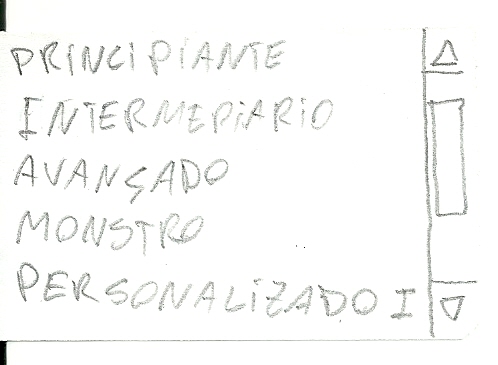 PRINCIPIANTE
INTERMEDIARIO
AVANÇADO
MONSTRO
PERSONALIZADO I